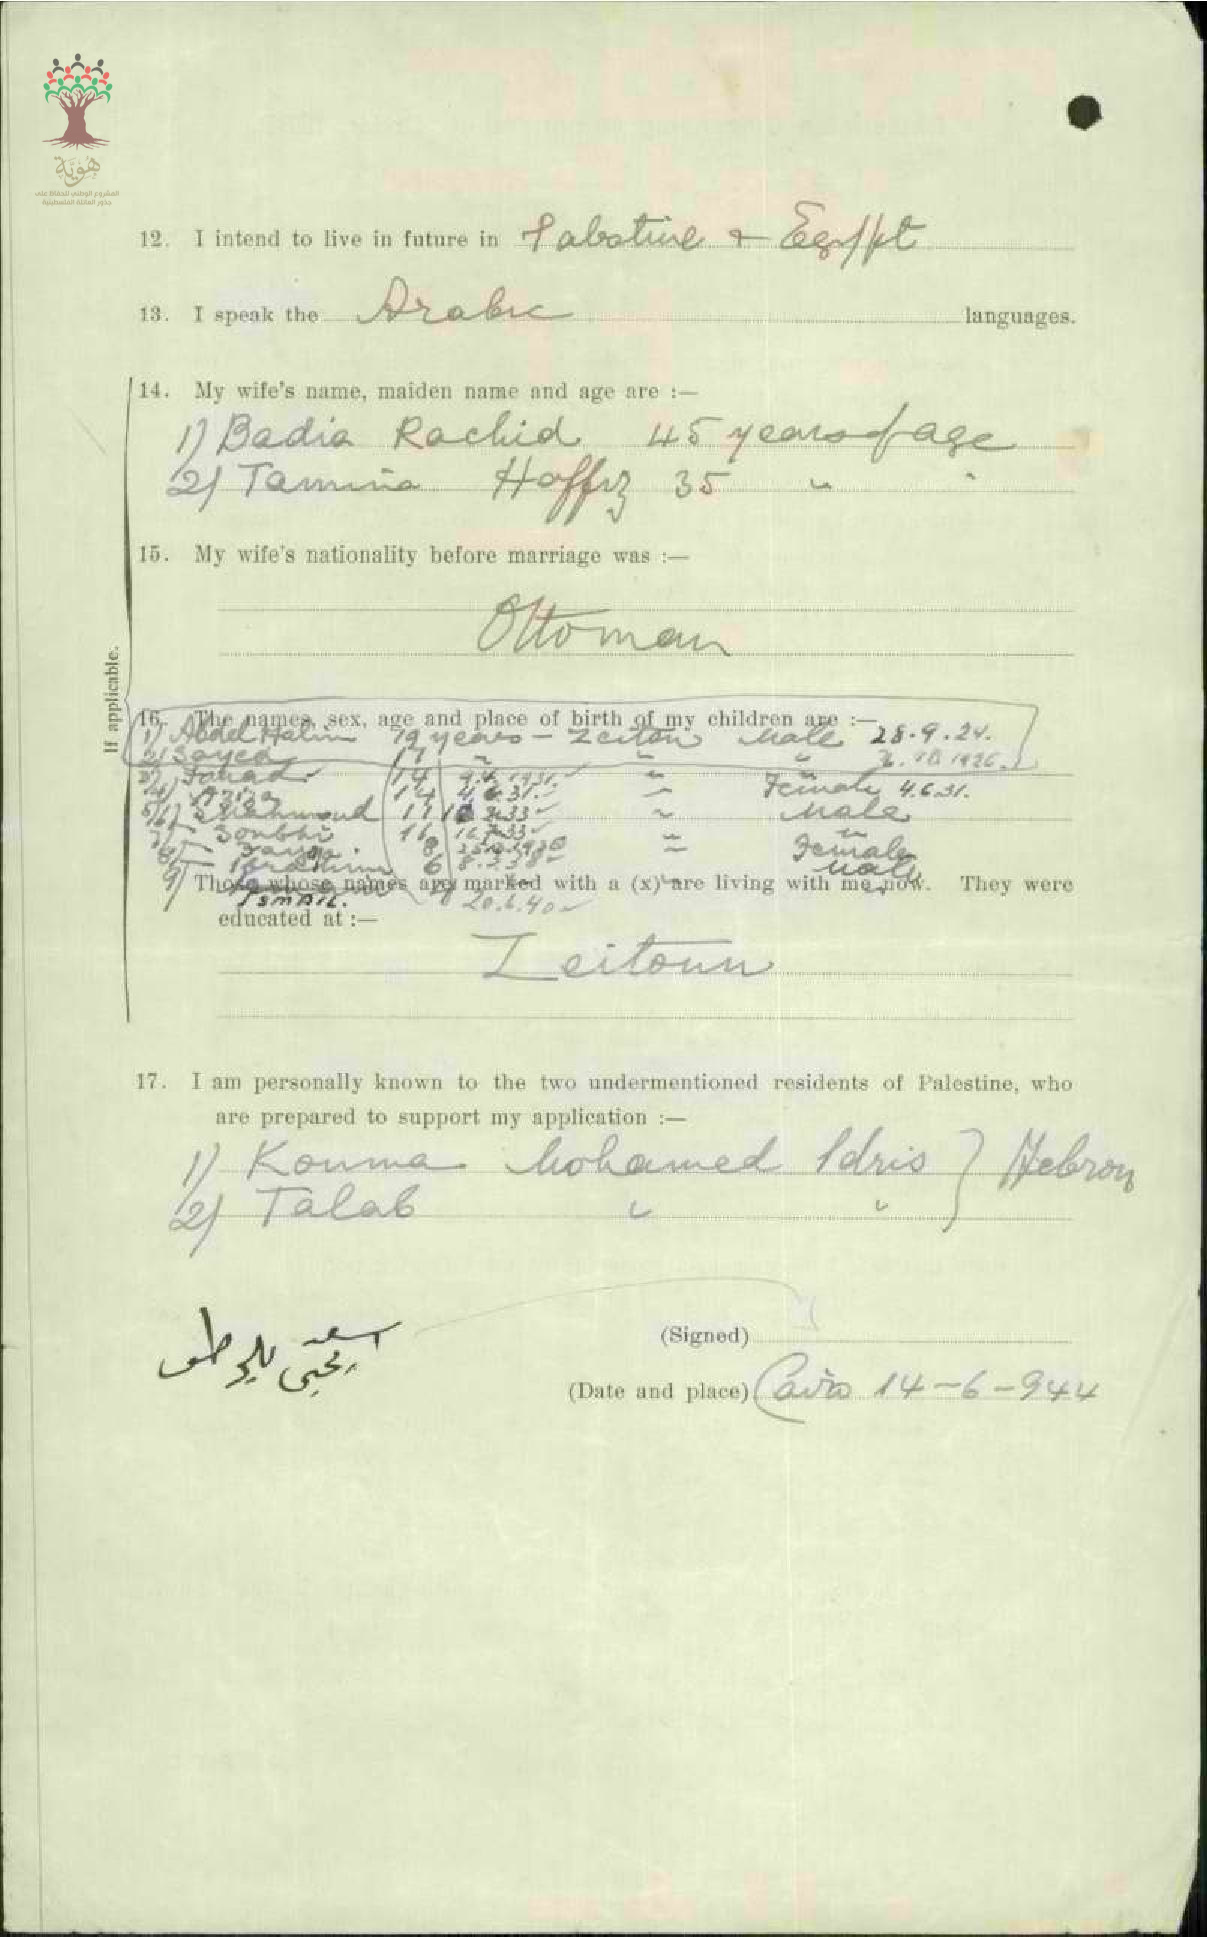 هوية
المشروع الوطني للحفاظ على
جذور العائلة الفلسطينية
12. I intend to live in future in Palestine + Egypt
13. I speak the Arabic languages.
If applicable.
14. My wife's name, maiden name and age are :—
1) Badia Rachid 45 years of age
2) Tamina Haffiz 35 " "
15. My wife's nationality before marriage was :—
Ottoman
16. The names, sex, age and place of birth of my children are :—
1) Abdel Halim 19 years - Zeiton Male 28.9.24.
2) Sayed 17 " " " 10 1926.
3) 14 9. 1931 "
4) Aziza 14 4.6.31. " Female 4.6.31.
5) Mahmoud 11 33 " Male
6) Soubhi 11 16.7.33 " "
7) 8 " Female
8) Ibrahim 6 8. 38 Male
9) Those whose names are marked with a (x) are living with me now. They were
Ismail. 20.6.40
educated at :—
Zeitoun
17. I am personally known to the two undermentioned residents of Palestine, who
are prepared to support my application :—
1) Kouma Mohamed Idris } Hebron
2) Talab " "
(Signed)
(Date and place) Cairo 14-6-944